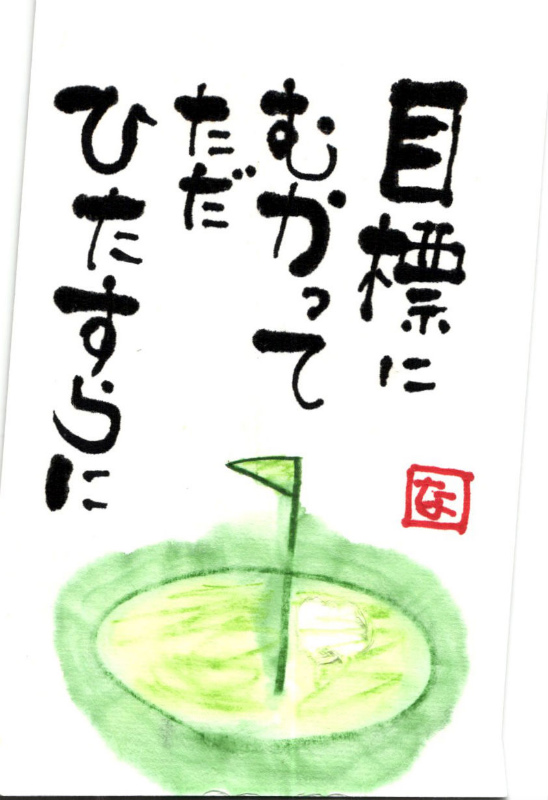 目標に
むかって
ただ
ひたすらに
な